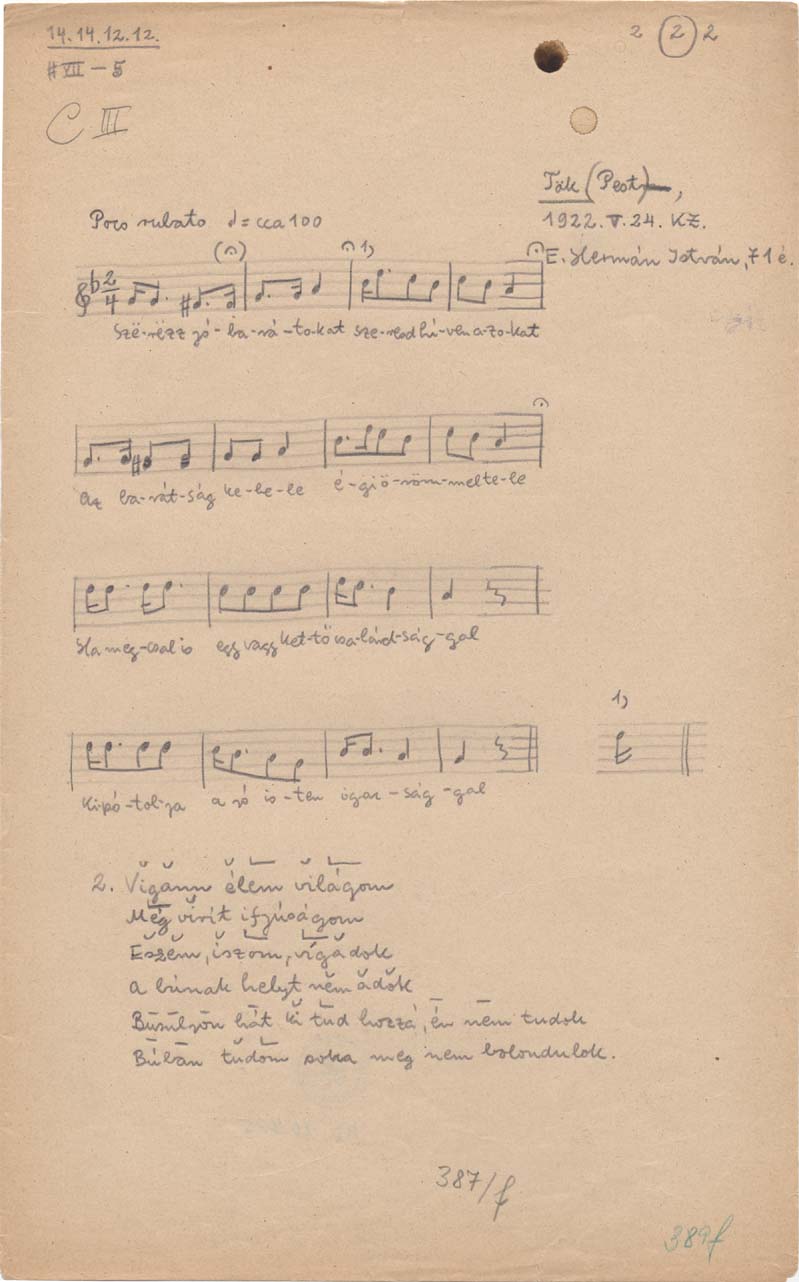 14.14.12.12.
2 2 2
#VII – 5
C III
Tök (Pest),
Poco rubato ♩= cca 100
1922. V. 24. KZ.
E. Hermán István, 71 é.
1)
2/4
Szë-rëzz jó-ba-rá-to-kat sze-resd hí-ven a-zo-kat
Az ba-rát-ság ke-be-le é-gi ö-röm-mel te-le
Ha meg-csal is egy vagy ket-tő csa-lárd-ság-gal
1)
Ki pó-tol-ja a jó is-ten igaz-ság-gal
2. Vigann élem világom
Még virít ifjúságom
Eszem, iszom, vígadok
A búnak helyt nem adok
Búsúljon hát ki tud hozzá, én nem tudok
Búbán tudom soha meg nem bolondulok.
387/f
389f